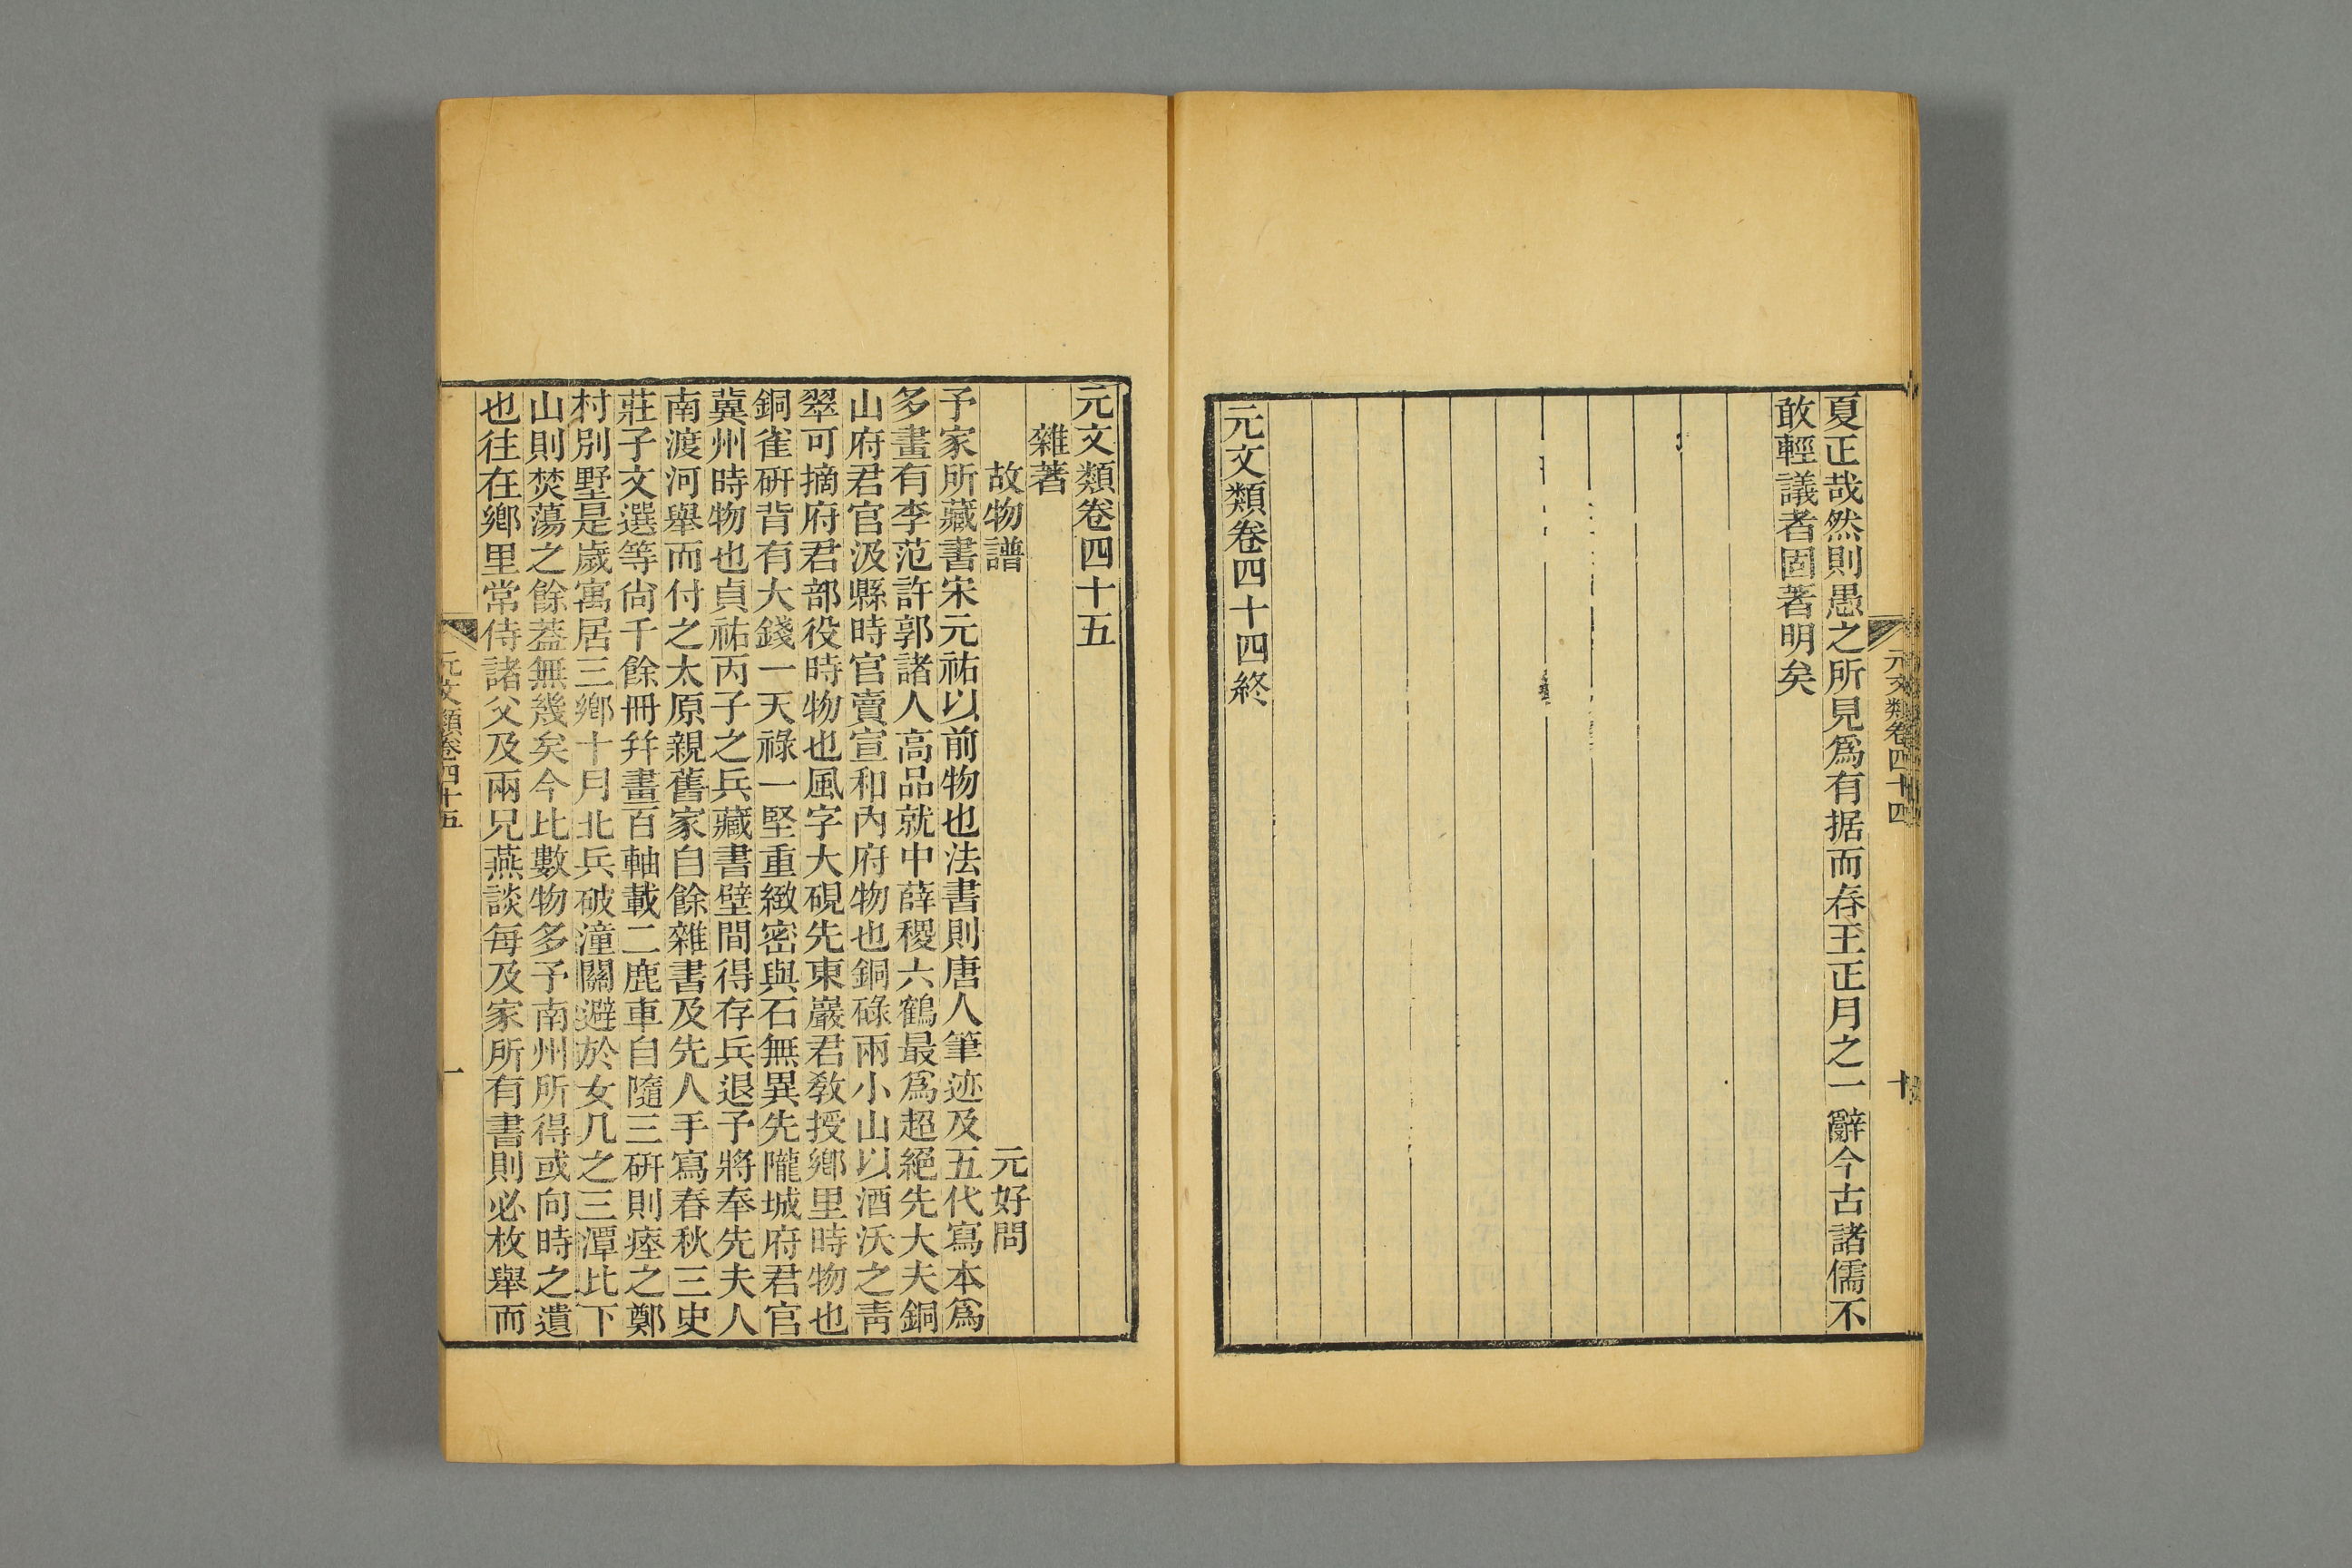 元文類卷四十四
十
夏正哉然則愚之所見爲有据而春王正月之一辭今古諸儒不
敢輕議者固著明矣
元文類卷四十四終
元文類卷四十五
雜著
故物譜
元好問
予家所藏書宋元祐以前物也法書則唐人筆迹及五代寫本爲
多畫有李范許郭諸人高品就中薛稷六鶴最爲超絕先大夫銅
山府君官汲縣時官賣宣和內府物也銅碌兩小山以酒沃之靑
翠可摘府君部役時物也風字大硯先東巖君敎授鄉里時物也
銅雀硏背有大錢一天祿一堅重緻密與石無異先隴城府君官
冀州時物也貞祐丙子之兵藏書壁間得存兵退予將奉先夫人
南渡河舉而付之太原親舊家自餘雜書及先人手寫春秋三史
莊子文選等尙千餘冊幷畫百軸載二鹿車自隨三硏則瘞之鄭
村別墅是歲寓居三鄉十月北兵破潼關避於女几之三潭比下
山則焚蕩之餘蓋無幾矣今此數物多予南州所得或向時之遺
也往在鄉里常侍諸父及兩兄燕談每及家所有書則必枚舉而
元文類卷四十五
一